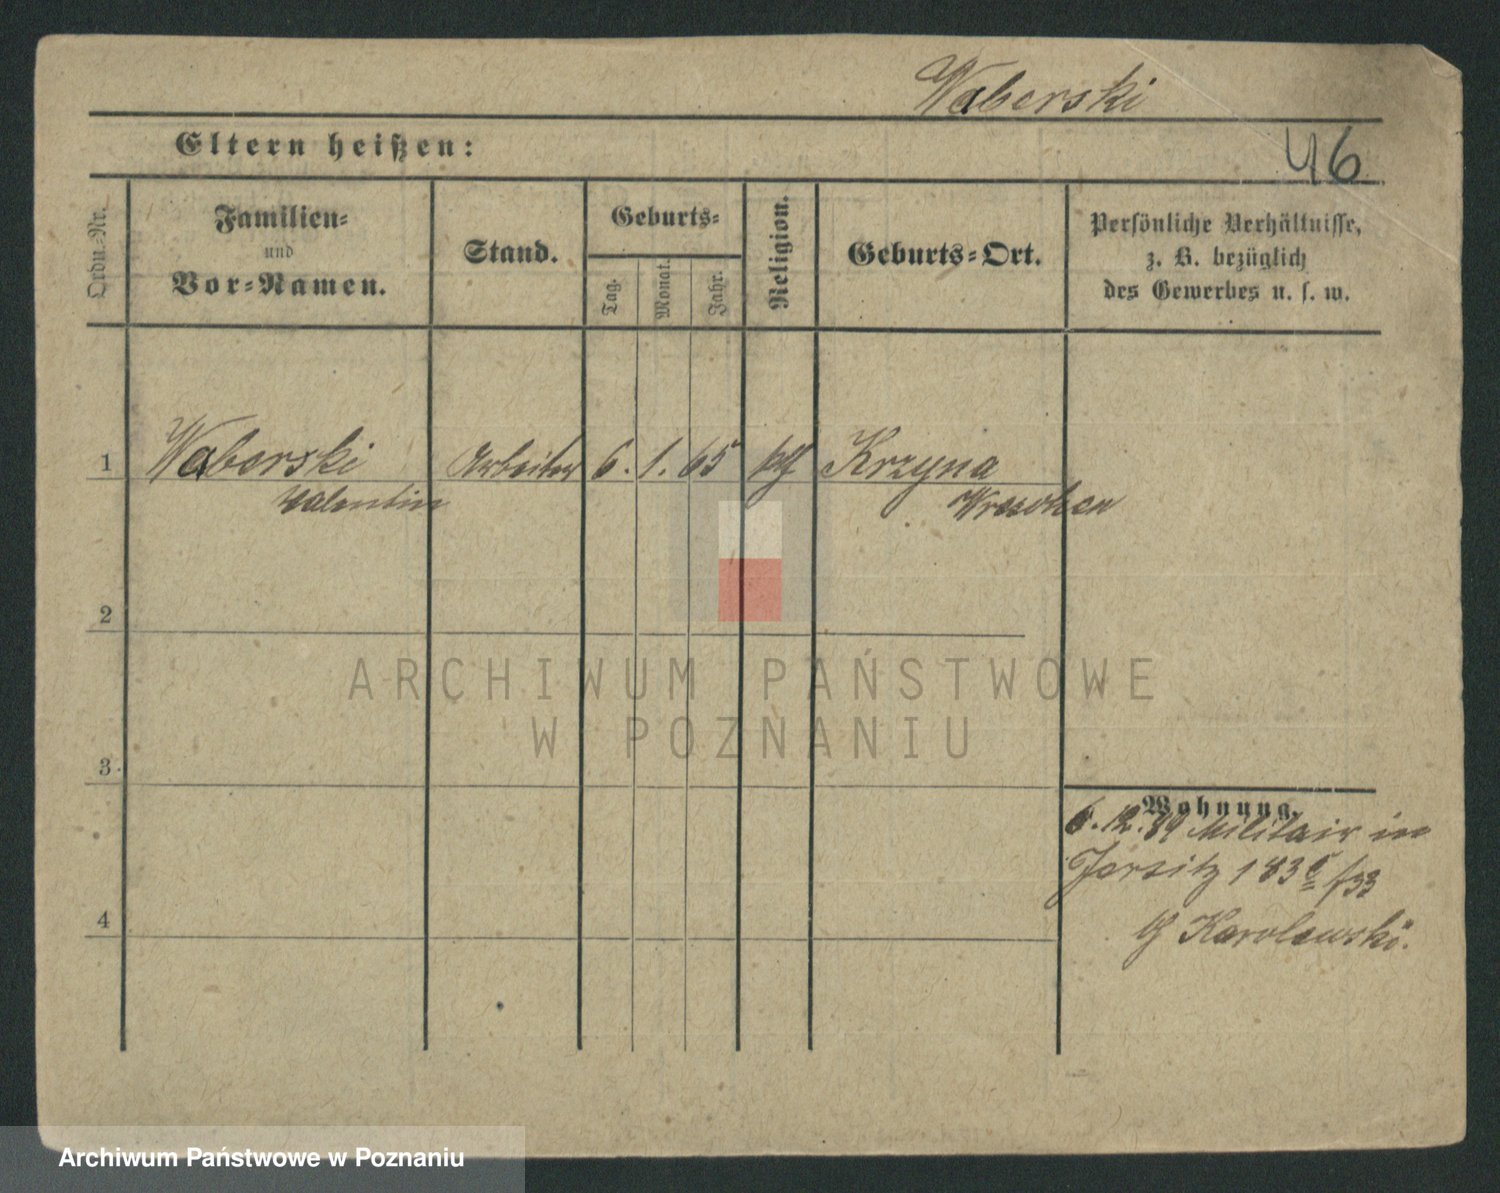 Waberski
Eltern heißen:
46
Ordn.-Nr.
Familien-
und
Vor-Namen.
Stand.
Geburts-
Tag.
Monat.
Jahr.
Religion.
Geburts-Ort.
Persönliche Verhältnisse,
z. B. bezüglich
des Gewerbes u. s. w.
1 Waberski Arbeiter 6. 1. 65 Krzyna
Valentin Wreschen
2
3
4
Wohnung.
6. 12. 89 Militair in
Jersitz 183
Karolewski.
ARCHIWUM PAŃSTWOWE
W POZNANIU
Archiwum Państwowe w Poznaniu